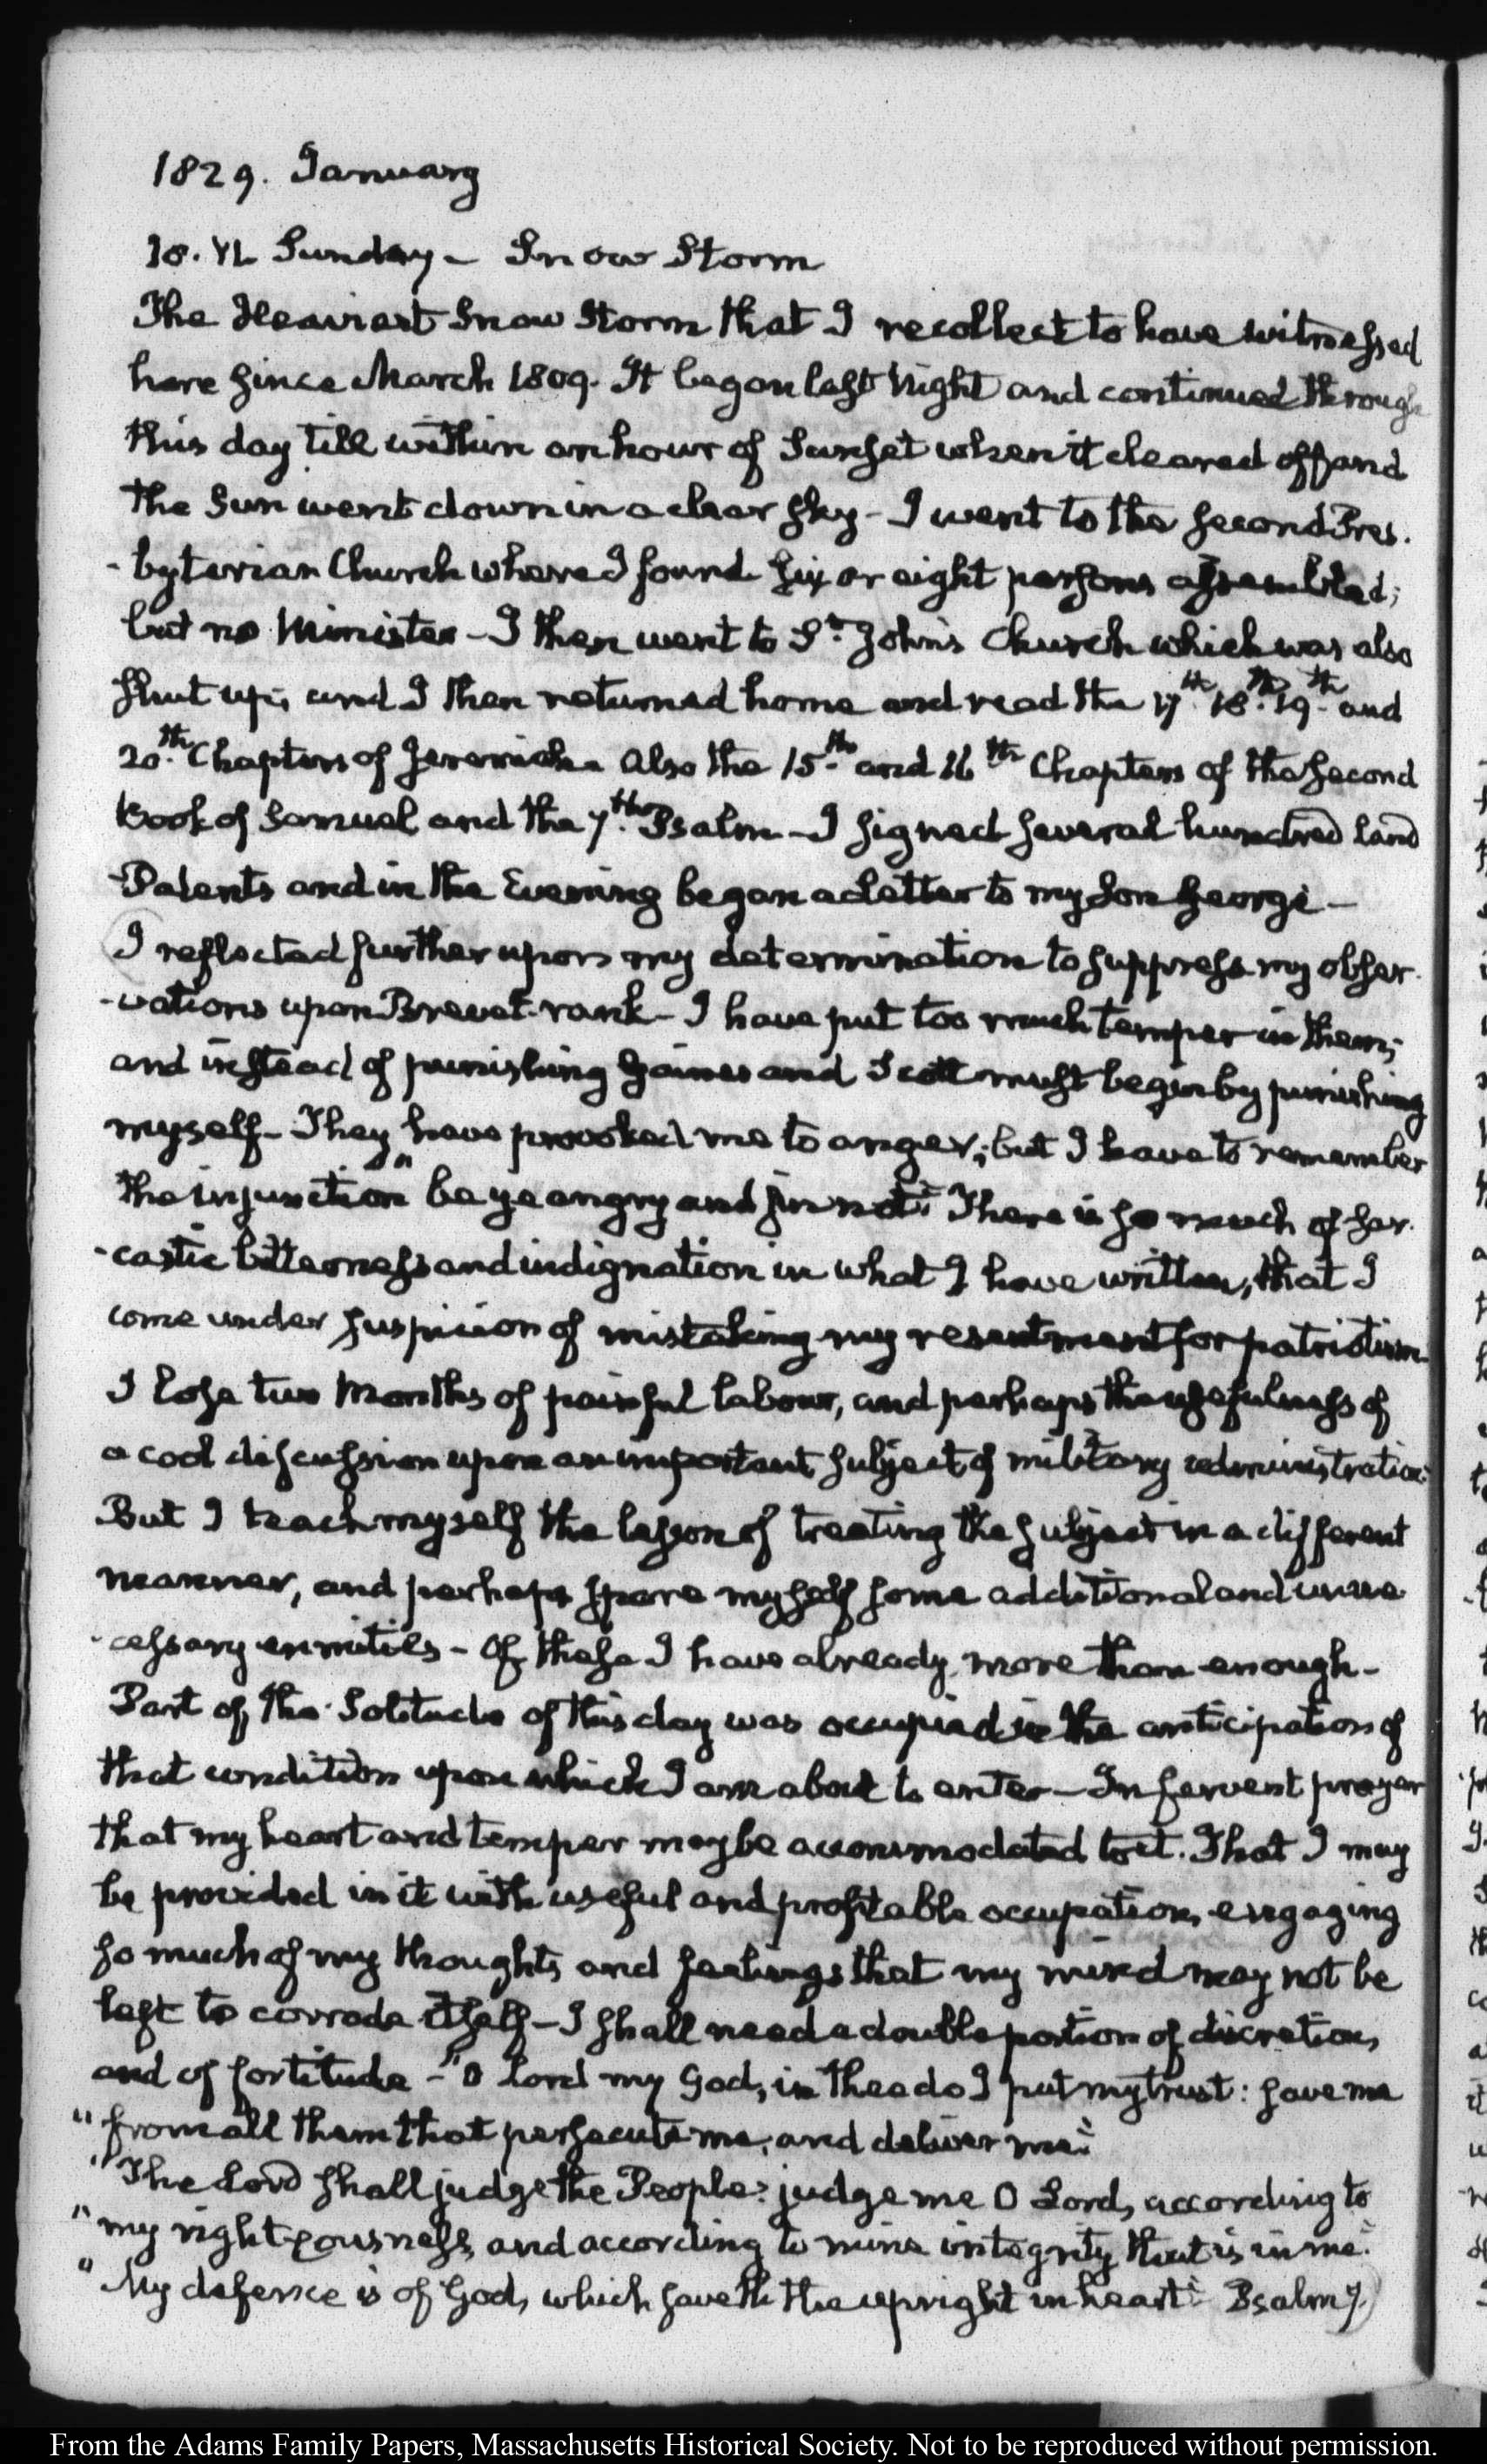 1829. January
18. VI. Sunday - Snow Storm
The Heaviest Snow Storm that I recollect to have witnessed
here since March 1809. It began last Night and continued through
this day till within an hour of Sunset when it cleared off and
the Sun went down in a clear sky - I went to the second Pres.
-byterian Church where I found six or eight persons assembled;
but no Minister - I then went to St. John's Church which was also
shut up; and I then returned home and read the 17th. 18th. 19th. and
20th. Chapters of Jeremiah. Also the 15th. and 16th Chapters of the second
Book of Samuel and the 7th. Psalm - I signed several hundred land
-Patents and in the Evening began a Letter to my Son George -
I reflected further upon my determination to suppress my obser.
-vations upon Brevet-rank - I have put too much temper in them;
and instead of punishing Gaines and Scott must begin by punishing
myself - They have provoked me to anger; but I have to remember
the injunction "be ye angry and sin not" There is so much of sar.
-castic bitterness and indignation in what I have written, that I
come under suspicion of mistaking my resentment for patriotism
I lose two Months of painful labour, and perhaps the usefulness of
a cool discussion upon an important subject of military administration
But I teach myself the lesson of treating the subject in a different
manner, and perhaps spare myself some additional and unne
-cessary enmities - Of these I have already more than enough -
Part of the Solitude of this day was occupied in the anticipation of
that condition upon which I am about to enter - In fervent prayer
that my heart and temper may be accommodated to it. That I may
be provided in it with useful and profitable occupation, engaging
so much of my thoughts and feelings that my mind may not be
left to corrode itself - I shall need a double portion of discretion,
and of fortitude - "O Lord my God, in thee do I put my trust: save me
"from all them that persecute me, and deliver me"
"The Lord shall judge the People: judge me O Lord, according to
"my righteousness, and according to mine integrity that is in me."
"My defence is of God, which saveth the upright in heart" Psalm 7.
From the Adams Family Papers, Massachusetts Historical Society. Not to be reproduced without permission.